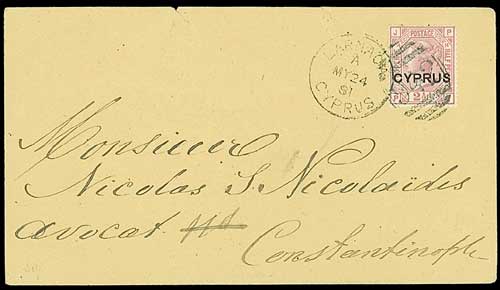 J POSTAGE P
LARNACA
A
MY 24
81
CYPRUS
CYPRUS
P 2½
Monsieur
Nicolas S. Nicolaïdes
avocat
Constantinople